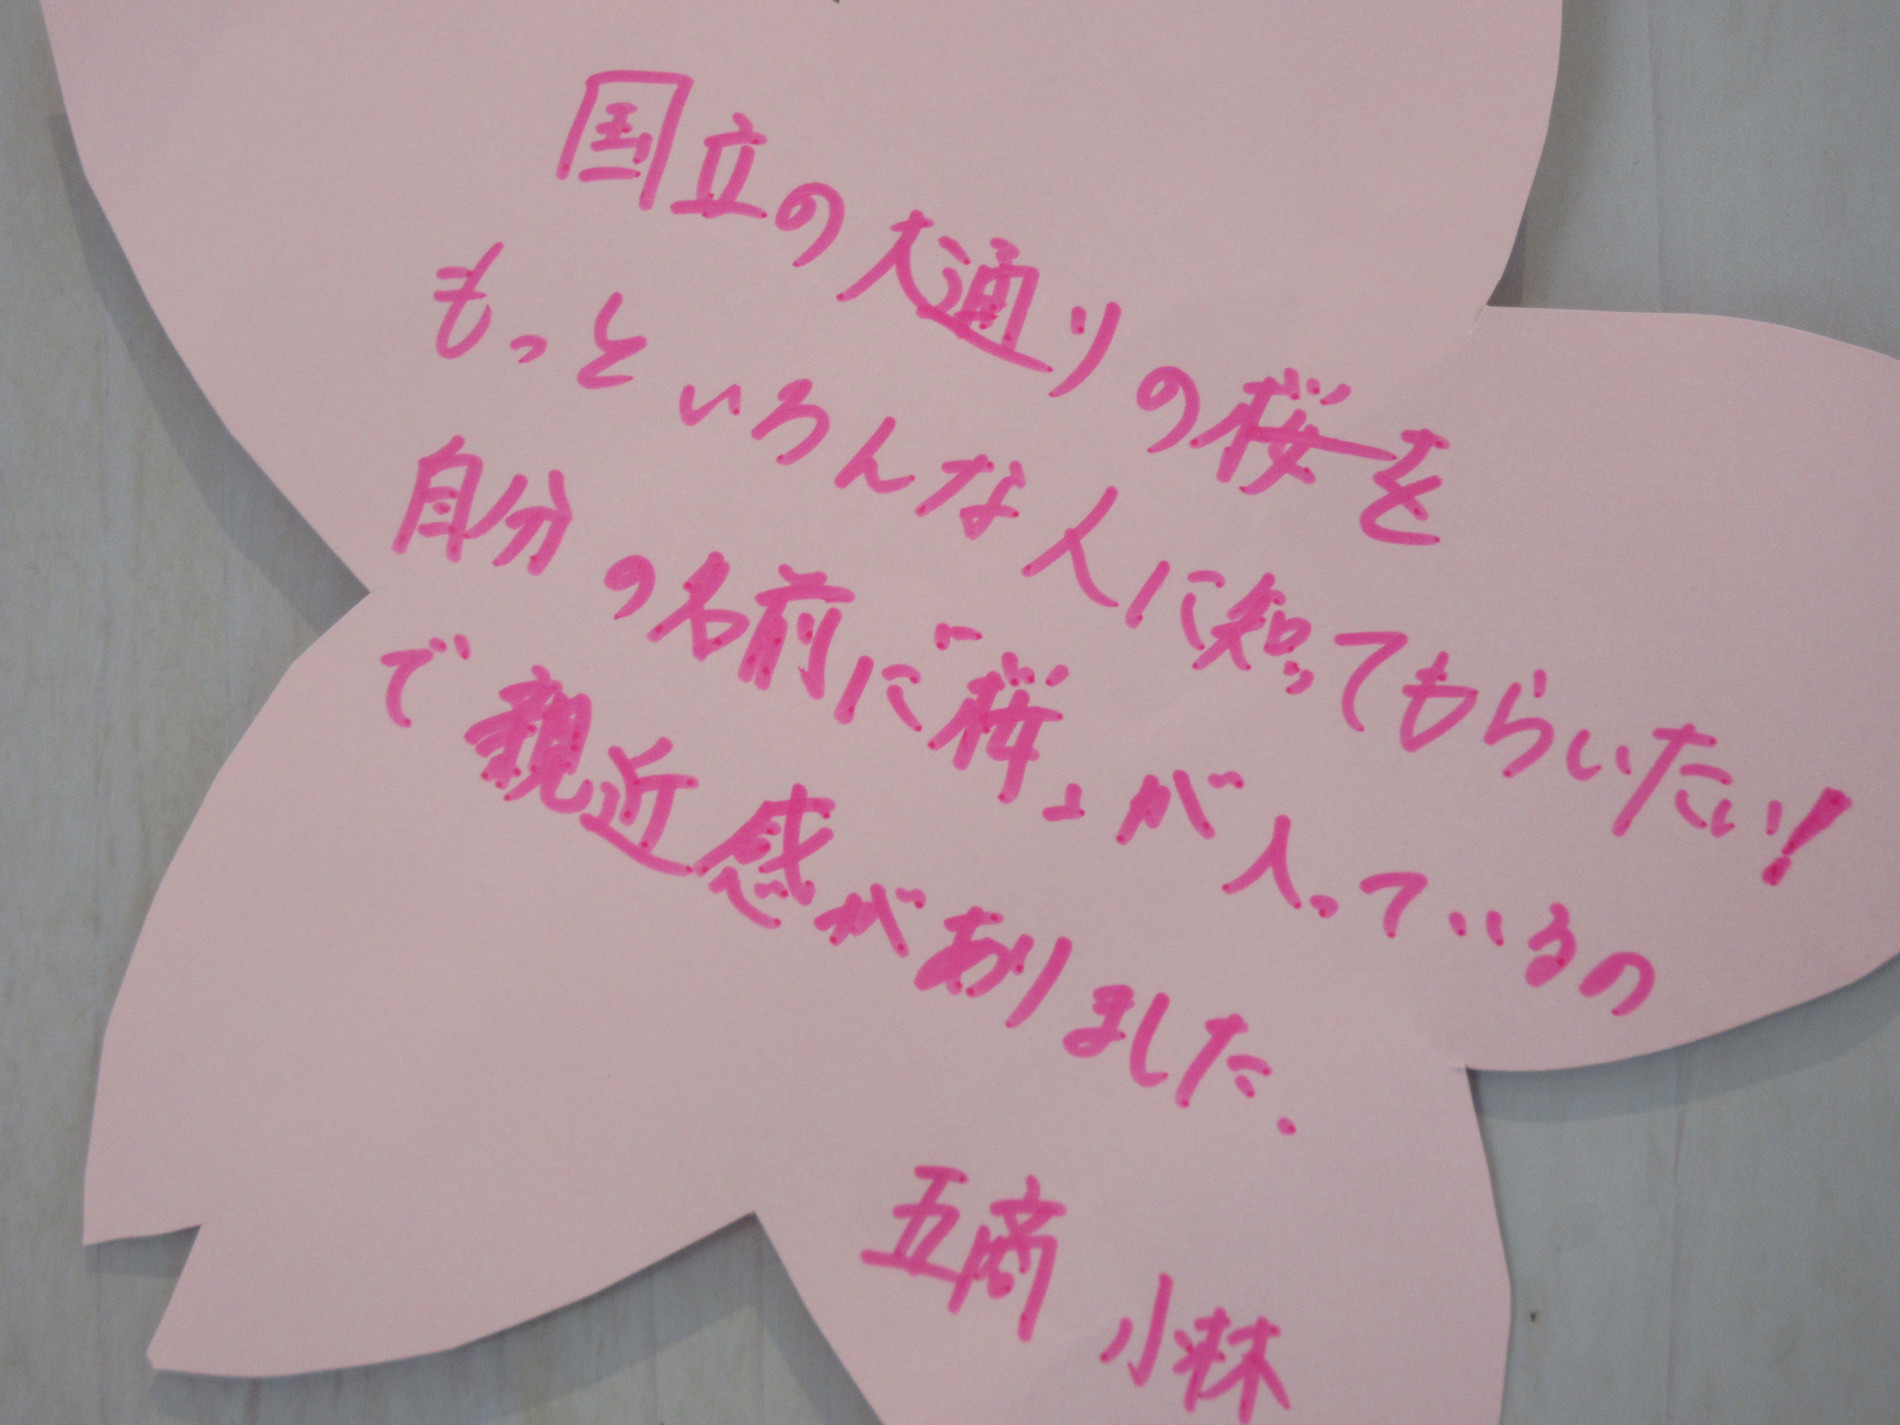 国立の大通りの桜を
もっといろんな人に知ってもらいたい!
自分の名前に「桜」が入っているの
で親近感がありました.
五商 小林